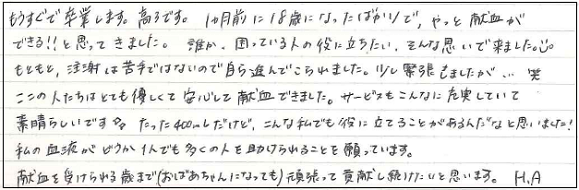 もうすぐで卒業します。高3です。1ヵ月前に18歳になったばかりで、やっと献血が
できる!!と思ってきました。誰か、困っている人の役に立ちたい、そんな思いで来ました。
もともと、注射は苦手ではないので自ら進んでこられました。少し緊張しましたが… 笑
ここの人たちはとても優しくて安心して献血できました。サービスもこんなに充実していて
素晴らしいです。たった400mLだけど、こんな私でも役に立てることがあるんだなと思いました!
私の血液がどうか1人でも多くの人を助けられることを願っています。
献血を受けられる歳まで(おばあちゃんになっても)頑張って貢献し続けたいと思います。 H.A